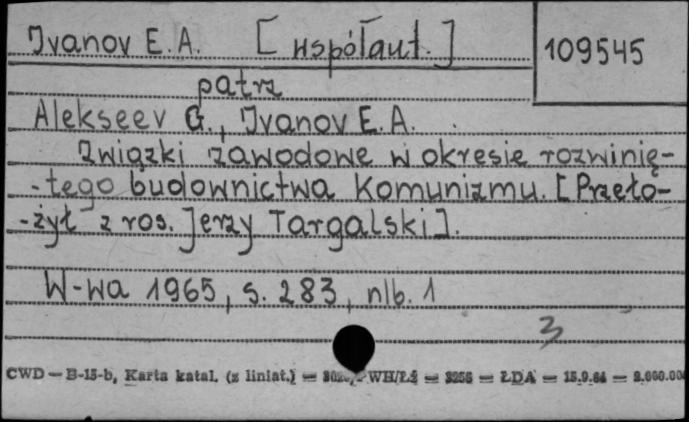 Ivanov E.A. [współaut.]
109545
patrz
Alekseev G., Ivanov E.A.
Związki zawodowe w okresie rozwinię-
-tego budownictwa Komunizmu. [Przeło-
-żył z ros. Jerzy Targalski].
W-wa 1965, s. 283, nlb. 1
3
CWD — B-15-b, Karta katal. (z liniat.) — WH/Ł2 — 3256 — ŁDA — 15.9.64 —